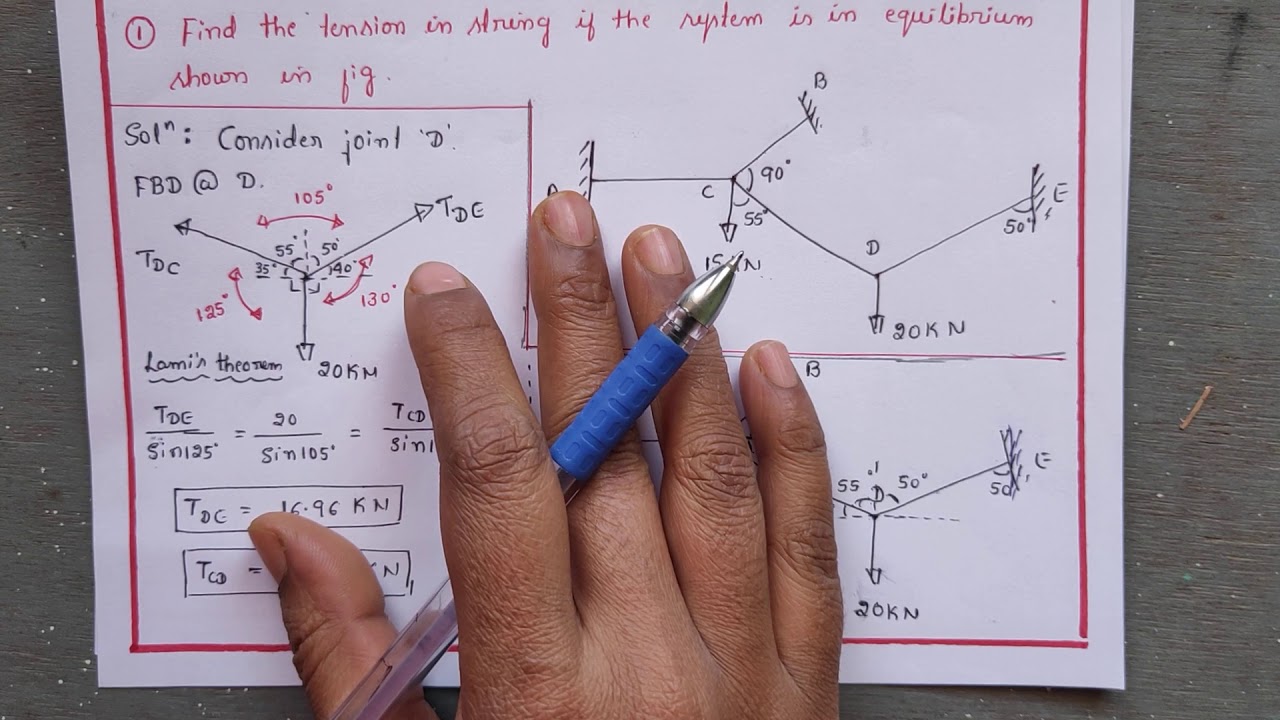 ① Find the tension in string if the system is in equilibrium
shown in fig.
Solⁿ: Consider joint 'D'.
FBD @ D.
105°
TDE
TDC
55° 50°
35° 40°
125°
130°
20KN
Lami's theorem
TDE / Sin125° = 20 / Sin105° = TCD
TDE = 16.96 KN
TCD = KN
B
90°
C
55°
E
50°
D
20KN
B
55° D 50°
E
50
20KN